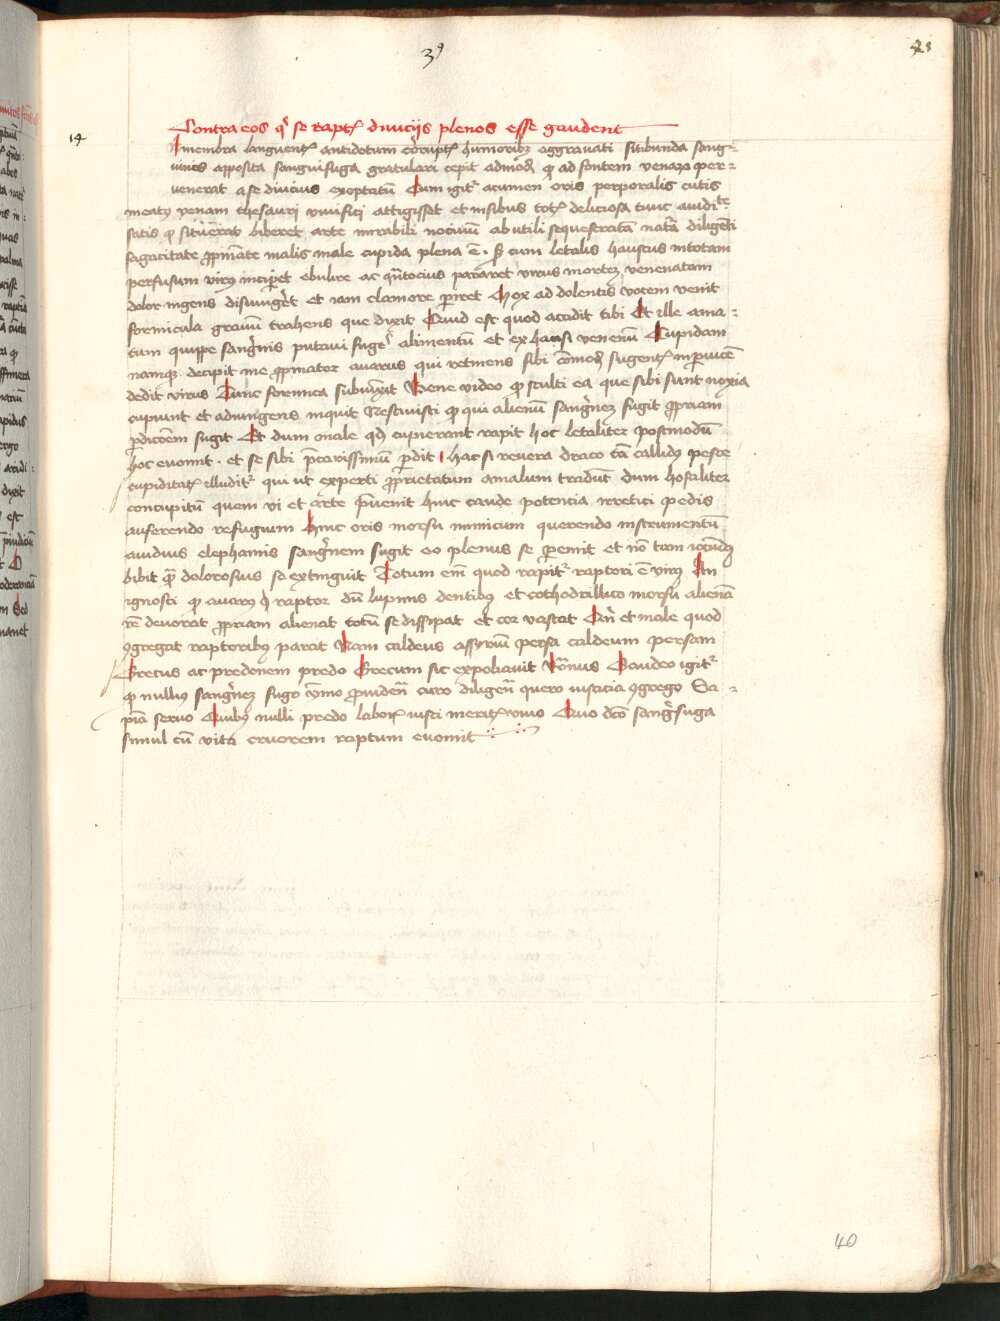 39
41
14
Contra eos qͥ se raptꝭ diuicijs plenos esse gaudent
Imembra languentꝭ antidotum corruptꝭ humoribꝫ aggrauati sitibunda sang-
uinis apposita sanguisuga gratulari cepit admodū ꝙ ad fontem venaꝝ per-
venerat a se diucius exoptatū Cum igitᷣ acumen oris perporalis cutis
meatꝰ venam thesauri viuifici attigisset et in sibus totꝭ deliciosa tunc auiditᵗᵉ
satis ꝙ sitiuerat biberet arte mirabili nociuū ab utili sequestrata nata diligenti
sagacitate ꝓpinate malis male cupida plena ē . Sꝫ cum letalis haustus in totam
perfusum virꝰ inciperet ebulire ac quātocius pararet virus mortez venenatam
dolor ingens disiunget et iam clamore periret Mox ad dolentis votem venit
formicula granū trahens que dixit Quid est quod accidit tibi Et ille ama-
tum quippe sangͥnis putaui sugeͬ alimentū et exhausi venenū Cupidam
namqꝫ decipit me ꝓpinator auarus qui retinens sibi cōmodū sugentꝭ in pniciē
dedit virus Tunc formica subiunxit Bene video ꝙ stulti ea que sibi sunt noxia
cupiunt et adiungens inquit Nesciuisti ꝙ qui alienū sangͥnez sugit ꝓpriam
ꝑdicōem sugit Et dum male qd cupierant rapit hoc letalitez postmodū
hoc euomit . et se sibi p̄carissimū ꝑdit hac si reuera draco tā callidꝰ peste
cupiditatꝭ illuditᷣ qui ut experti ꝓprietatum aīalium tradūt dum hostilitez
concupitū quem vi et arte p̄uenit hinc caude potencia irretici pedis
auferendo refugium hinc oris morsu inimicum querendo instrumentū
auidius elephantis sangͥnem sugit eo plenus se ꝑemit et nō tam iocundꝰ
bibit qͣ dolorosius sꝫ extinguit Totum em̄ quod rapitᷣ raptori ē virꝰ An
ignosti ꝙ auarꝰ qͥ raptor dū lupinis dentibꝰ et cothodrillico morsu alienā
rē deuorat ꝓpriam alienat totū se dissipat et cor vastat et male quod
ꝯgregat raptoribꝰ parat Nam caldeus assyriū persa caldeum persam
Grecus ac predonem predo Grecum sic expoliauit Romnus Gaudeo igitᷣ
ꝙ nullius sangͥnez sugo cōmo ꝓuidentꝭ curo diligentꝭ quero iusticia ꝯgrego Sa-
piā seruo Quibꝰ nulli predo laborꝭ iusti meritꝭ viuo Quo dcō sangͥsuga
simul cū vita cruorem raptum euomit
40